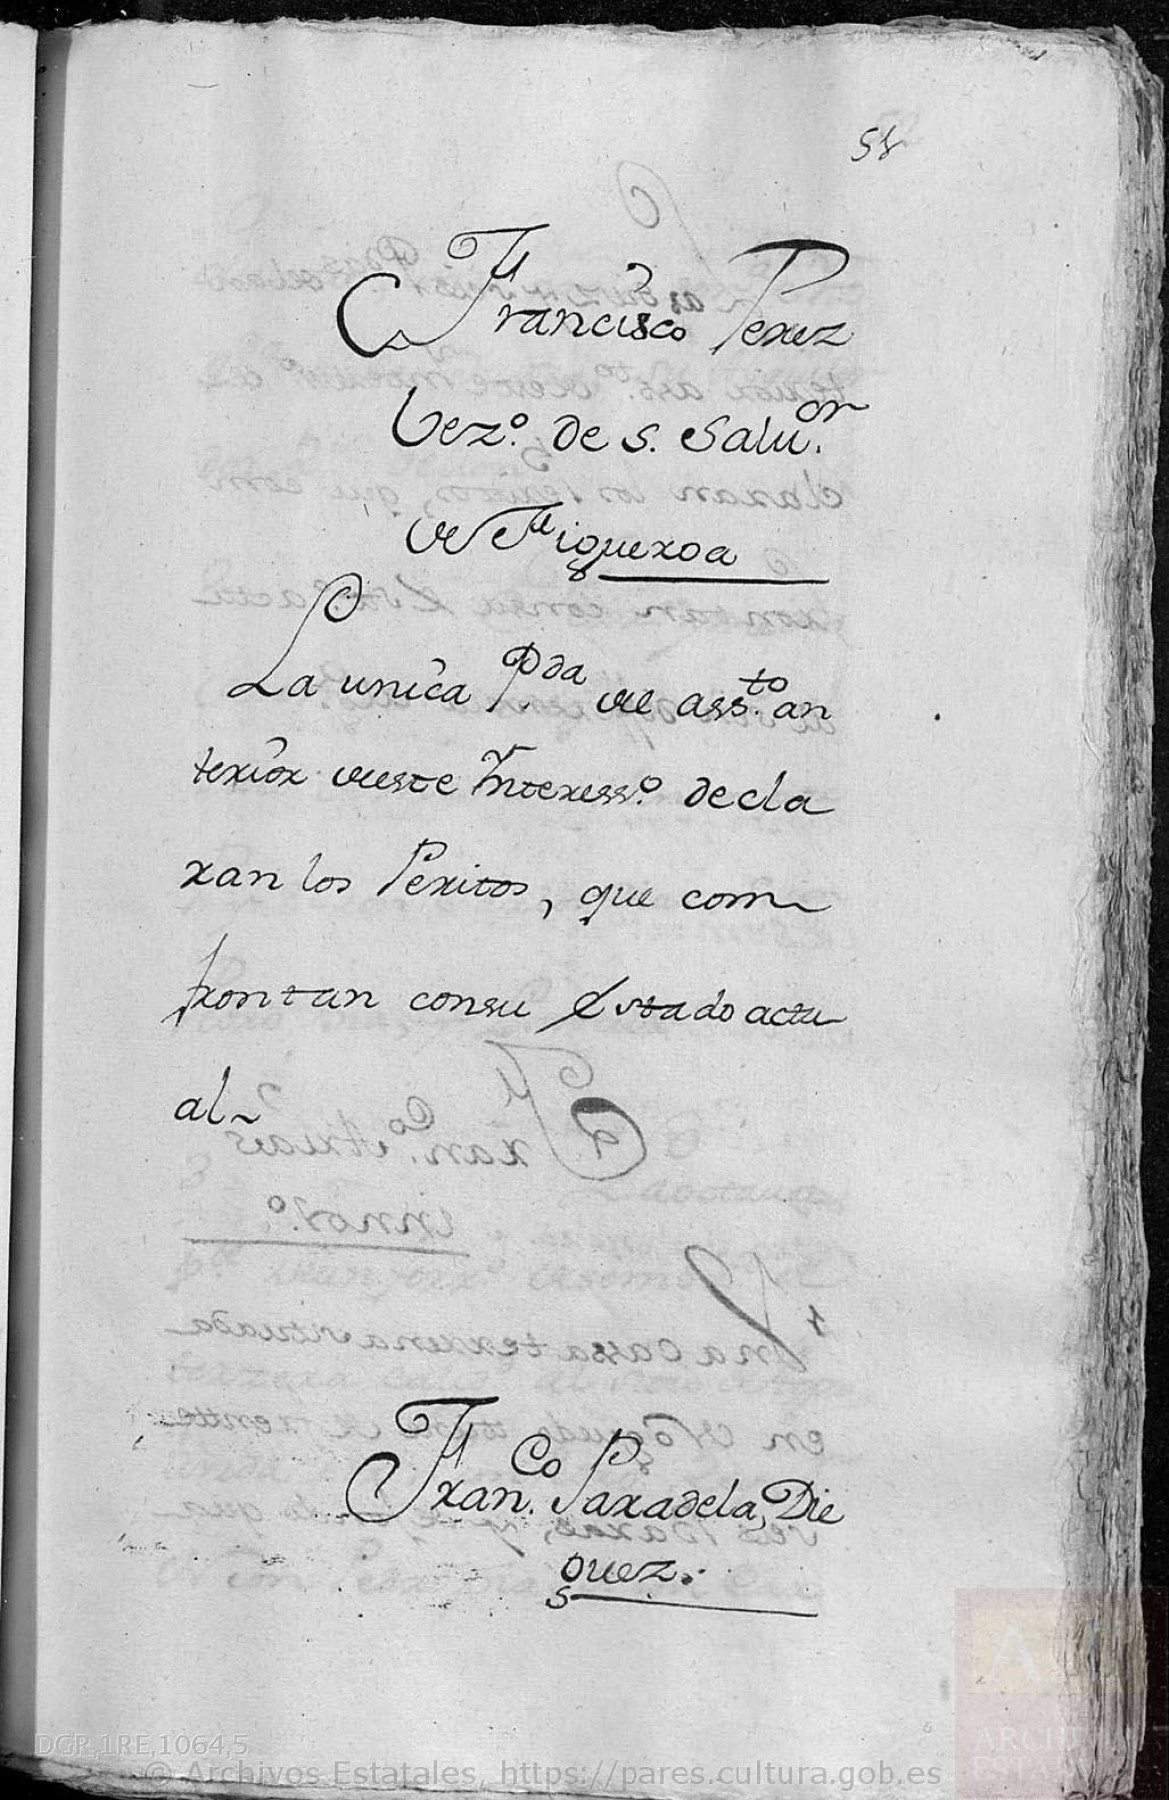 58
Francisco Perez
Vez.º de S. Salu.or
de Figueroa
La unica P.da de ass.to an
terior deste Interess.º decla
ran los Peritos, que com
frontan consu Estado actu
al~
Fran.co Paradela, Die
guez.
DGR,1RE,1064,5
© Archivos Estatales, https://pares.cultura.gob.es